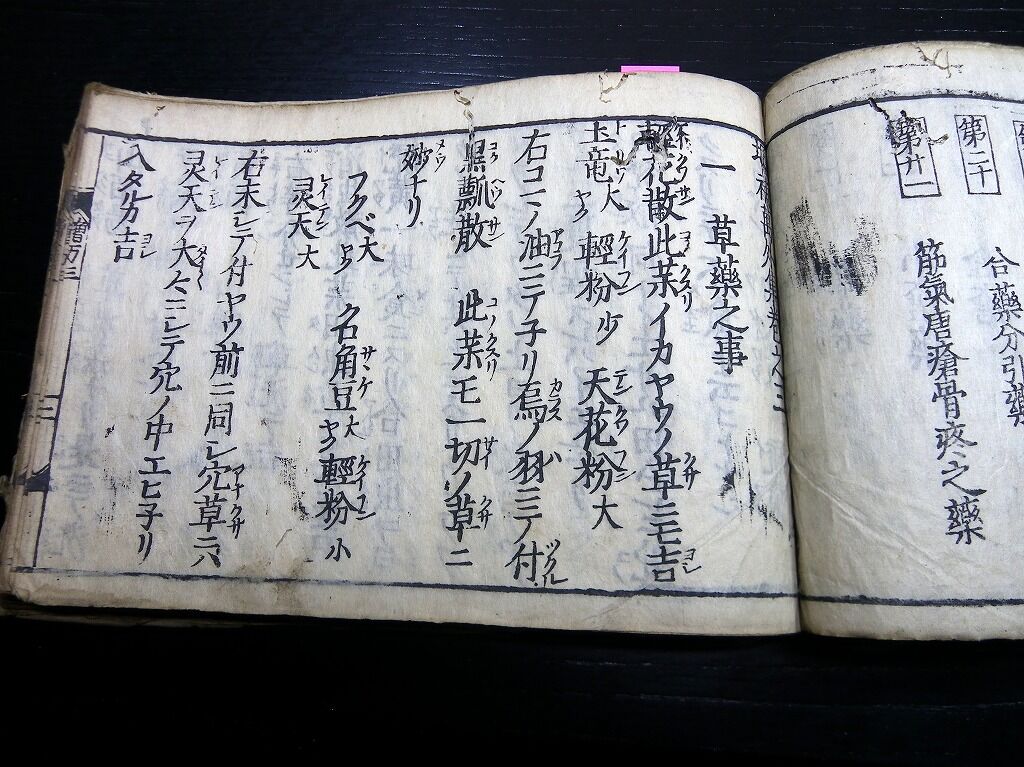 第二十
合藥分引藥
第廿一
筋氣唐瘡骨疼之藥
一 草藥之事
輕花散此薬イカヤウノ草ニモ吉
土竜大 輕粉少 天花粉大
右コマノ油ニテ子リ烏ノ羽ニテ付
黒瓢散 此薬モ一切ノ草ニ
妙ナリ
フクベ大 名角豆大 輕粉小
灵天大
右末シテ付ヤウ前ニ同シ穴草ニハ
灵天ヲ大〻ニシテ穴ノ中エヒ子リ
入タルカ吉
三